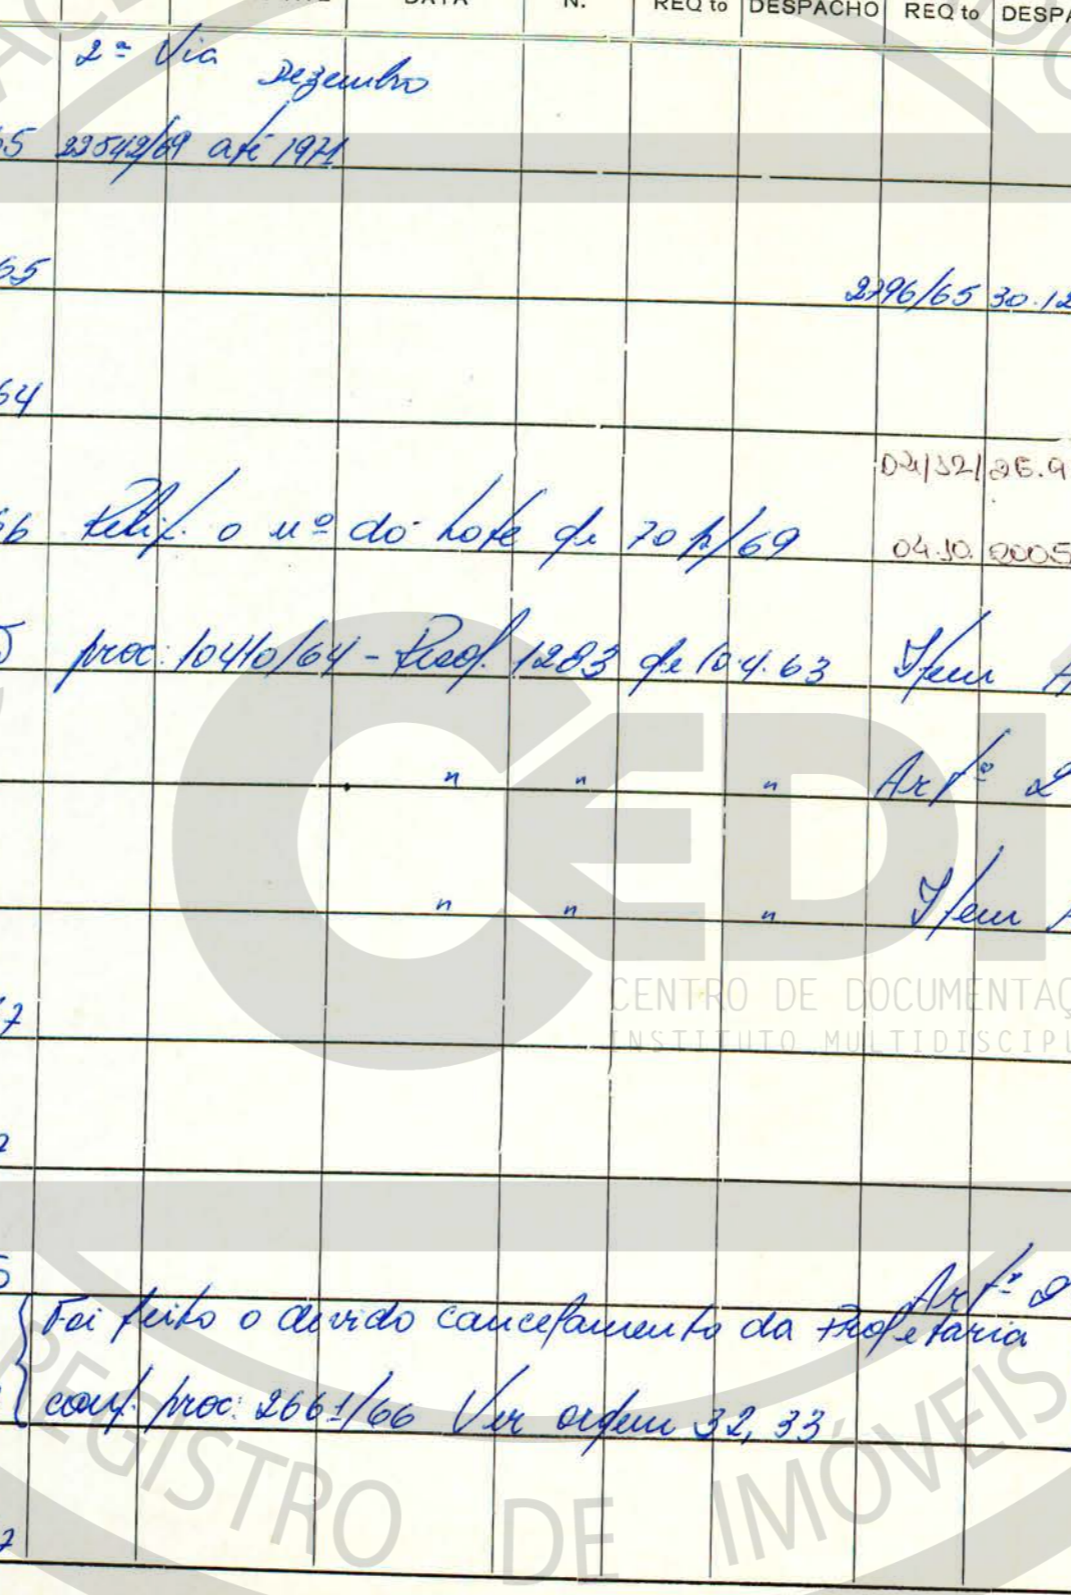 DATA N. REQ to DESPACHO REQ to DESPA
2ª Via Dezembro
65 22542/69 até 1971
65 2796/65 30.12
64
04/32/ 26.9
66 Retif. o nº do Lote de 70 p/69 04.10.2005
proc: 10410/64 - 1283 de 10.4.63 Item A
" " " Artº 2
" " " Item A
CENTRO DE DOCUMENTAÇ
INSTITUTO MULTIDISCIPL
7
2
5 Artº 2
Foi feito o devido cancelamento da
conf. proc: 2661/66 Ver ordem 32, 33
REGISTRO DE IMÓVEIS
7
CEDI